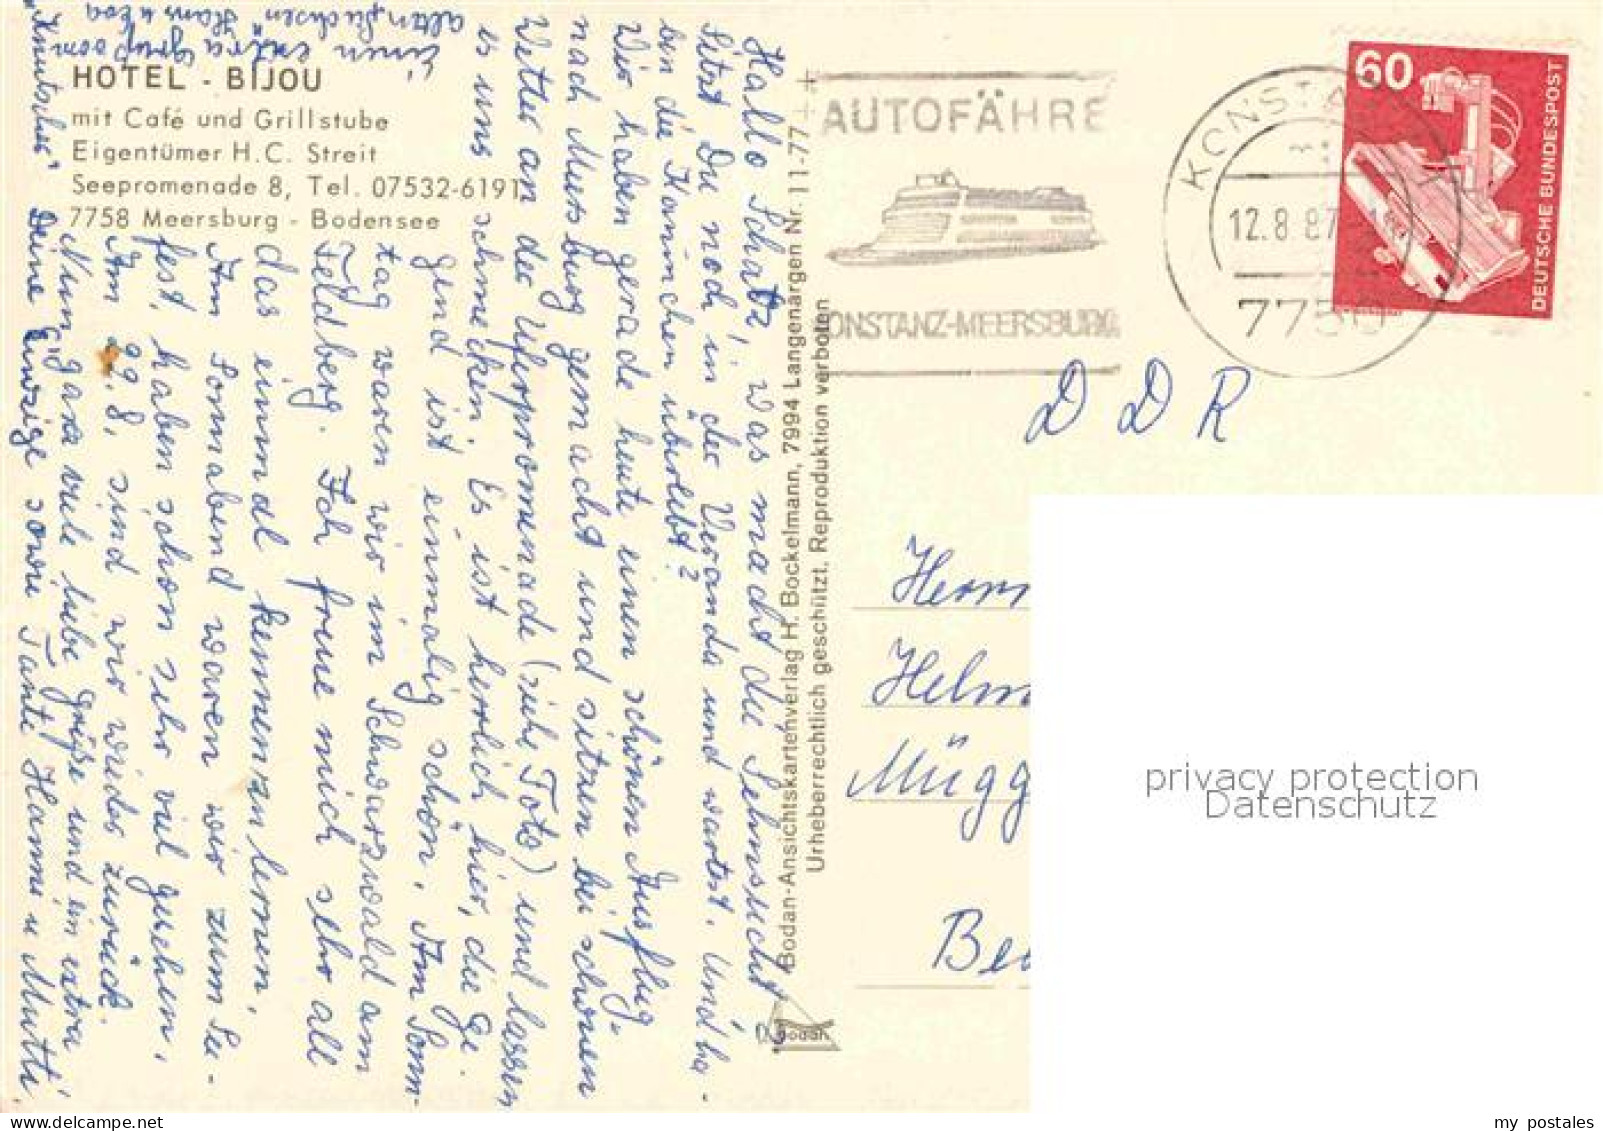 HOTEL - BIJOU
mit Café und Grillstube
Eigentümer H.C. Streit
Seepromenade 8, Tel. 07532-6191
7758 Meersburg - Bodensee
Hallo Schatz! Was macht die Sehnsucht?
Sitzt Du noch in der Veranda und wartest. Und ha-
ben die Kaninchen überlebt?
Wir haben gerade heute einen schönen Ausflug
nach Meersburg gemacht und sitzen bei schönem
Wetter an der Uferpromenade (siehe Foto) und lassen
es uns schmecken. Es ist herrlich hier, die Ge-
gend ist einmalig schön. Am Sonn-
tag waren wir im Schwarzwald am
Feldberg. Ich freue mich sehr all
das einmal kennenzulernen.
Am Sonnabend waren wir zum See-
fest, haben schon sehr viel gesehen.
Am 29.8. sind wir wieder zurück.
Nun ganz viele liebe Grüße und ein extra
Deine Einzige sowie Tante Hanni u Mutti.
Einen extra Gruß vom
alten
Hans u Eva
Bodan-Ansichtskartenverlag H. Bockelmann, 7994 Langenargen Nr. 11-77
Urheberrechtlich geschützt, Reproduktion verboten
bodan
AUTOFÄHRE
KONSTANZ-MEERSBURG
KONSTANZ
12.8.87
7750
60
DEUTSCHE BUNDESPOST
DDR
Herrn
Helm
Mügg
Be
privacy protection
Datenschutz
my postales